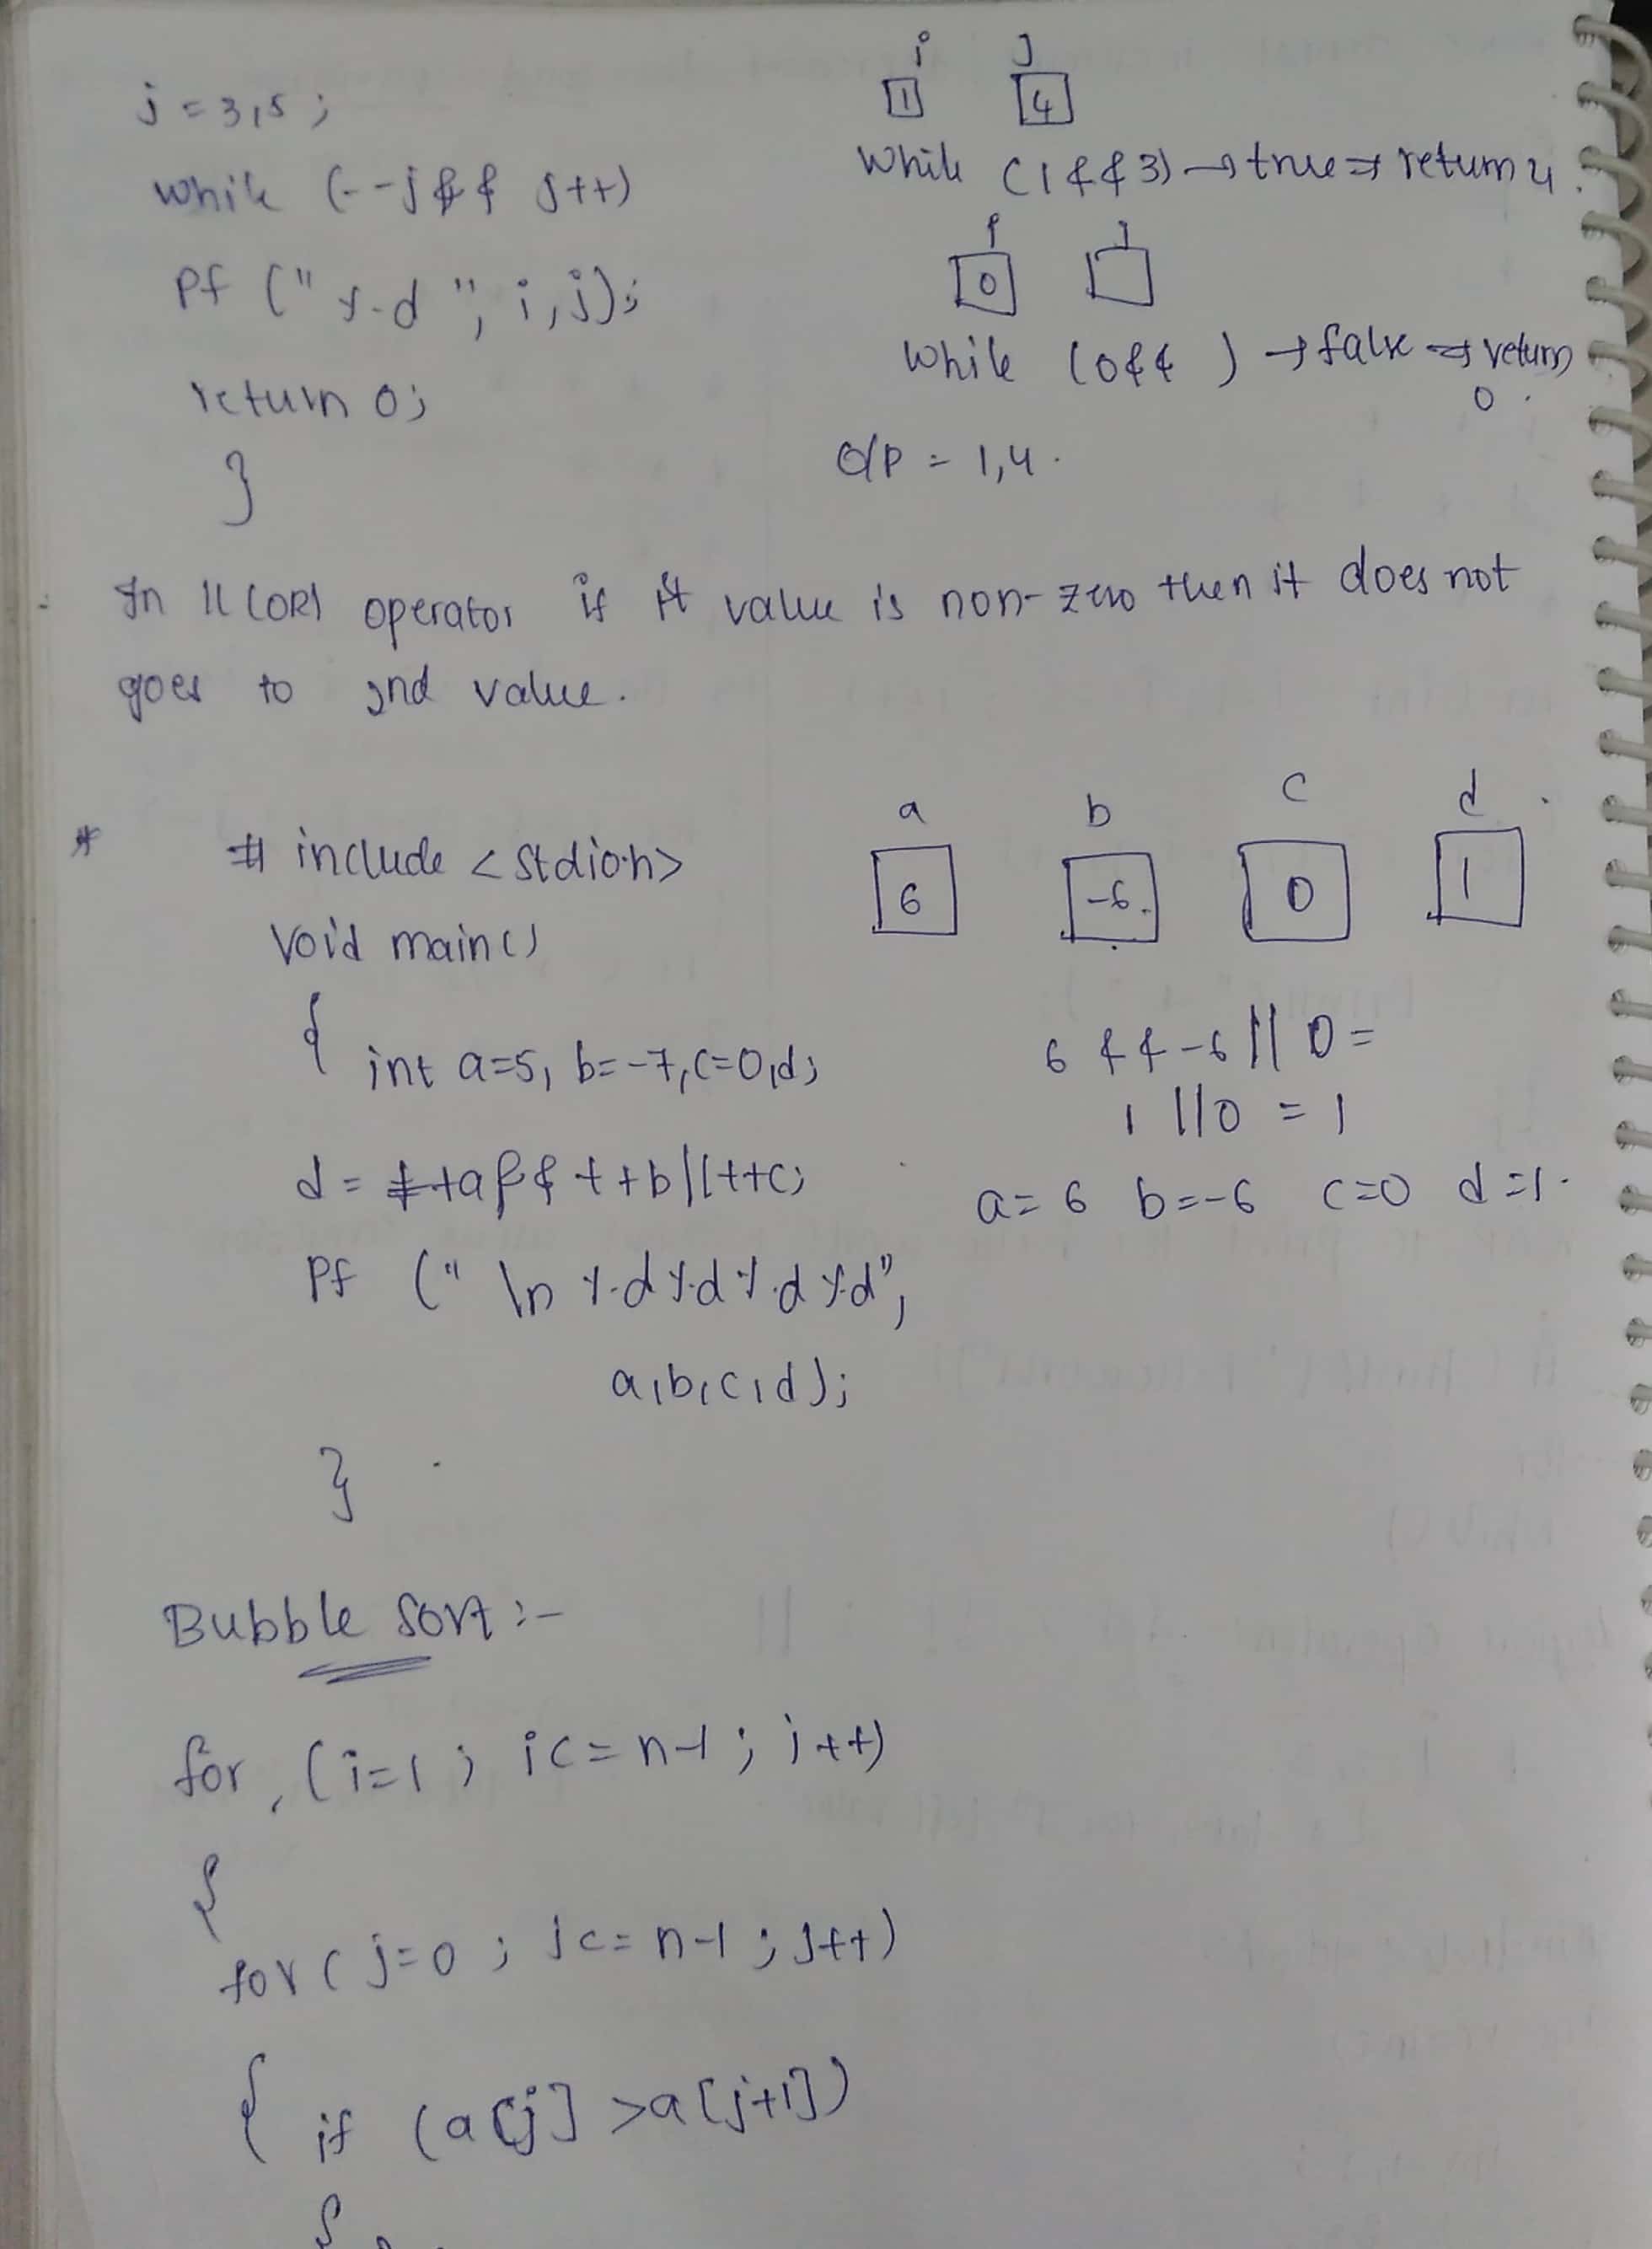 j = 3,5 ;
while (--j && j++)
Pf ("%d", i,j);
return 0;
}
i j
1 4
while (1 && 3) → true ⇒ return 4.
i j
0
while (0 && ) → false ⇒ return
0.
O/P = 1,4.
In || (OR) operator if it value is non-zero then it does not
goes to 2nd value.
* # include <stdio.h>
void main()
{ int a=5, b=-7,c=0,d;
d = ++a && ++b || ++c;
Pf ("\n %d %d %d %d",
a,b,c,d);
}
a b c d
6 -6 0 1
6 && -6 || 0 =
1 || 0 = 1
a=6 b=-6 c=0 d=1.
Bubble sort :-
for (i=1 ; i<=n-1 ; i++)
{
for (j=0 ; j<=n-1 ; j++)
{ if (a[j] >a[j+1])
{